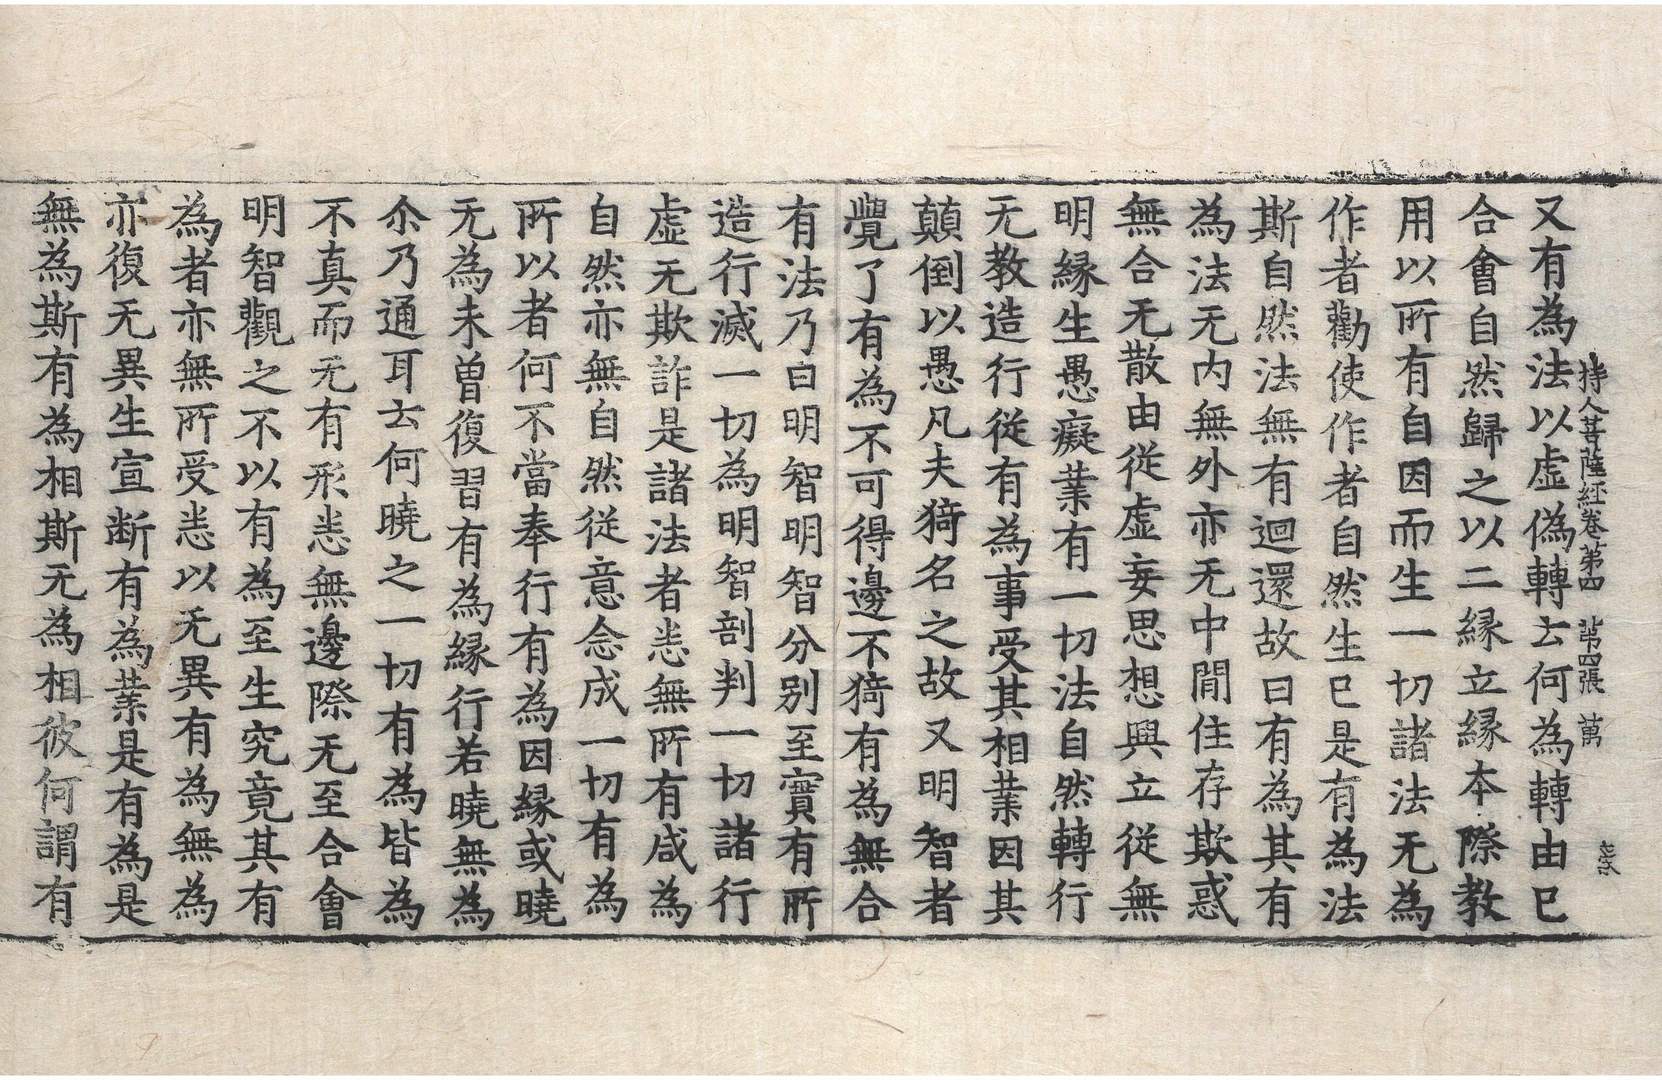 持人菩薩經卷第四 第四張 萬
又有為法以虛偽轉云何為轉由已
合會自然歸之以二緣立緣本際教
用以所有自因而生一切諸法无為
作者勸使作者自然生已是有為法
斯自然法無有迴還故曰有為其有
為法无內無外亦无中閒住存欺惑
無合无散由從虛妄思想興立從無
明緣生愚癡業有一切法自然轉行
无教造行從有為事受其相業因其
顛倒以愚凡夫猗名之故又明智者
覺了有為不可得邊不猗有為無合
有法乃曰明智明智分別至實有所
造行滅一切為明智剖判一切諸行
虛无欺詐是諸法者悉無所有咸為
自然亦無自然從意念成一切有為
所以者何不當奉行有為因緣或曉
无為未曾復習有為緣行若曉無為
尒乃通耳云何曉之一切有為皆為
不真而无有形悉無邊際无至合會
明智觀之不以有為至生究竟其有
為者亦無所受悉以无異有為無為
亦復无異生宣断有為業是有為是
無為斯有為相斯无為相彼何謂有